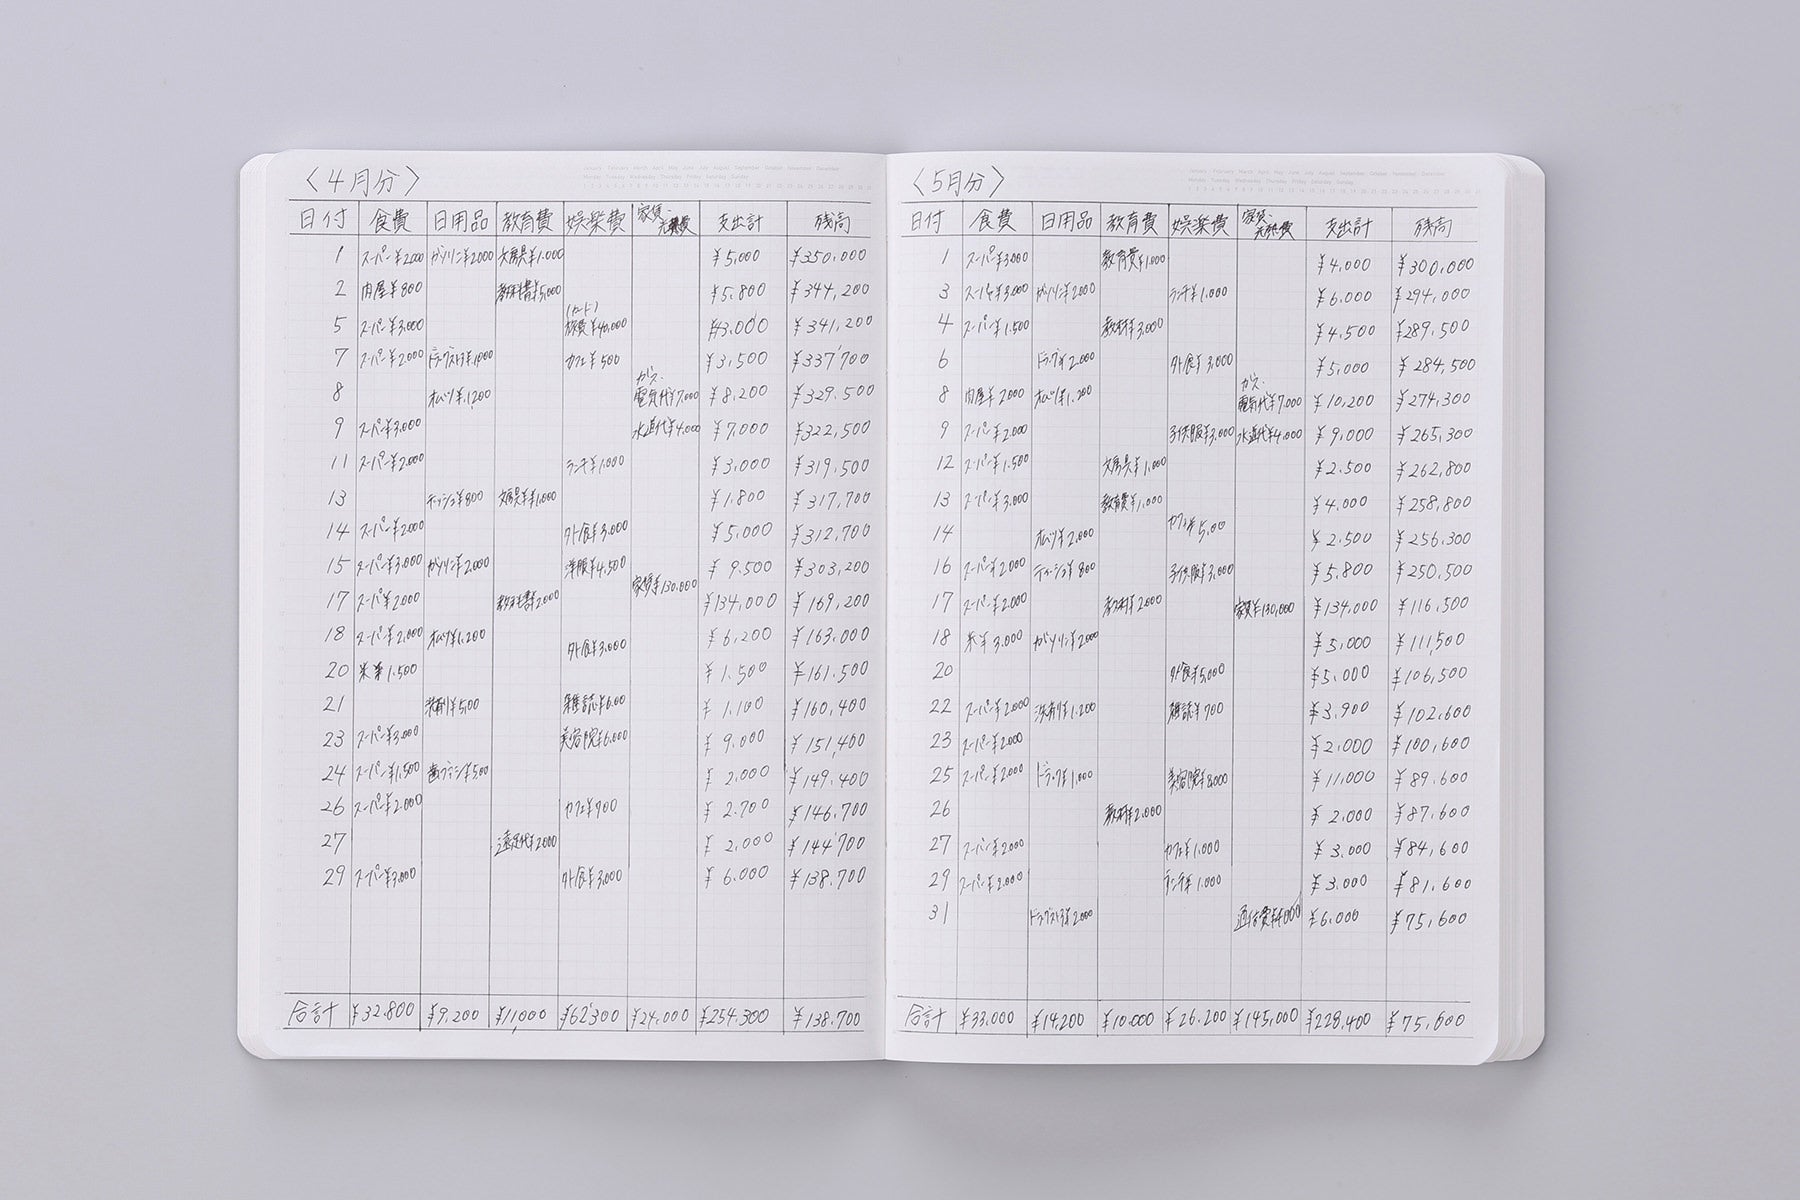 〈4月分〉
日付 食費 日用品 教育費 娯楽費 家賃、光熱費 支出計 残高
1 スーパー¥2000 ガソリン¥2000 文房具¥1.000 ¥5,000 ¥350,000
2 肉屋¥800 教科書¥5,000 ¥5,800 ¥344,200
5 スーパー¥3,000 (カード)旅費¥40,000 ¥3,000 ¥341,200
7 スーパー¥2000 ドラッグストア¥1,000 カフェ¥500 ¥3,500 ¥337,700
8 オムツ¥1,200 ガス・電気代¥7,000 ¥8,200 ¥329,500
9 スーパー¥3,000 水道代¥4,000 ¥7,000 ¥322,500
11 スーパー¥2,000 ランチ¥1,000 ¥3,000 ¥319,500
13 ティッシュ¥800 文房具¥1,000 ¥1.800 ¥317,700
14 スーパー¥2000 外食¥3,000 ¥5,000 ¥312,700
15 スーパー¥3,000 ガソリン¥2,000 洋服¥4,500 ¥9.500 ¥303,200
17 スーパー¥2000 教科書¥2000 家賃¥130,000 ¥134,000 ¥169,200
18 スーパー¥2,000 オムツ¥1,200 外食¥3,000 ¥6,200 ¥163,000
20 米¥1,500 ¥1,500 ¥161,500
21 洗剤¥500 雑誌¥600 ¥1,100 ¥160,400
23 スーパー¥3,000 美容院¥6,000 ¥9,000 ¥151,400
24 スーパー¥1,500 歯ブラシ¥500 ¥2,000 ¥149,400
26 スーパー¥2,000 カフェ¥700 ¥2.700 ¥146,700
27 遠足代¥2000 ¥2,000 ¥144,700
29 スーパー¥3,000 外食¥3,000 ¥6,000 ¥138,700
合計 ¥32.800 ¥9,200 ¥11,000 ¥62,300 ¥24,000 ¥254,300 ¥138,700
〈5月分〉
日付 食費 日用品 教育費 娯楽費 家賃、光熱費 支出計 残高
1 スーパー¥3,000 教育費¥1,000 ¥4,000 ¥300,000
3 スーパー¥3,000 ガソリン¥2000 ランチ¥1,000 ¥6,000 ¥294,000
4 スーパー¥1,500 教材¥3,000 ¥4,500 ¥289,500
6 ドラッグ¥2.000 外食¥3,000 ¥5,000 ¥284,500
8 肉屋¥2000 オムツ¥1,200 ガス・電気代¥7,000 ¥10,200 ¥274,300
9 スーパー¥2.000 子供服¥3,000 水道代¥4,000 ¥9,000 ¥265,300
12 スーパー¥1.500 文房具¥1,000 ¥2.500 ¥262,800
13 スーパー¥3,000 教育費¥1,000 ¥4,000 ¥258,800
14 オムツ¥2,000 カフェ¥500 ¥2,500 ¥256,300
16 スーパー¥2000 ティッシュ¥800 子供服¥3,000 ¥5,800 ¥250,500
17 スーパー¥2,000 教材¥2000 家賃¥130,000 ¥134,000 ¥116,500
18 米¥3,000 ガソリン¥2000 ¥5,000 ¥111,500
20 外食¥5,000 ¥5,000 ¥106,500
22 スーパー¥2,000 洗剤¥1.200 雑誌¥700 ¥3,900 ¥102,600
23 スーパー¥2000 ¥2,000 ¥100,600
25 スーパー¥2000 ドラッグ¥1,000 美容院¥8,000 ¥11,000 ¥89,600
26 教材¥2,000 ¥2,000 ¥87,600
27 スーパー¥2000 カフェ¥1,000 ¥3,000 ¥84,600
29 スーパー¥2.000 ランチ¥1,000 ¥3.000 ¥81,600
31 ドラッグストア¥2000 通信費¥4,000 ¥6,000 ¥75,600
合計 ¥33,000 ¥14,200 ¥10,000 ¥26.200 ¥145,000 ¥228,400 ¥75,600